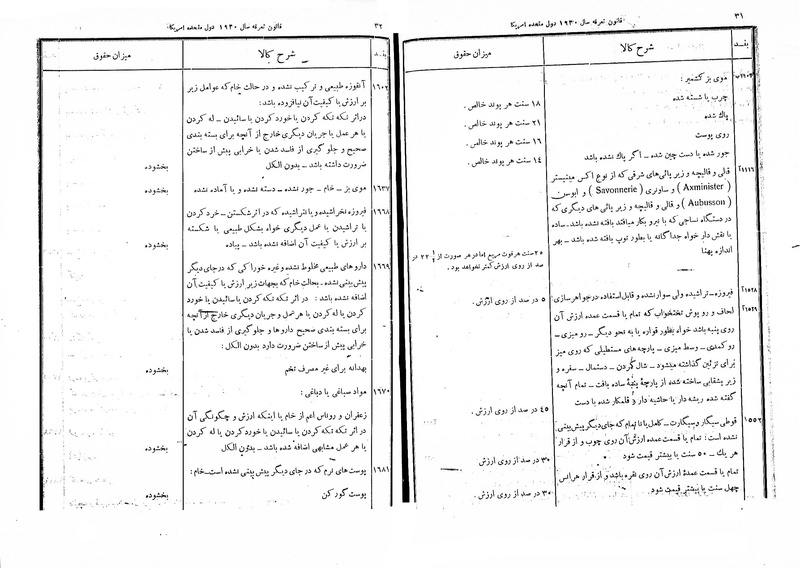 ۳۱
قانون تعرفه سال ۱۹۳۰ دول متحده امریکا
بند
شرح کالا
میزان حقوق
موی بز کشمیر :
چرب یا شسته شده
۱۸ سنت هر پوند خالص .
پاك شده
۲۱ سنت هر پوند خالص .
روی پوست
۱۶ سنت هر پوند خالص .
جور شده یا دست چین شده – اگر پاك نشده باشد
۱۴ سنت هر پوند خالص .
۱۱۱۶
قالی و قالیچه و زیر پائی های شرقی که از نوع اکس مینیستر
( Axminister ) و ساونری ( Savonnerie ) و ابوسن
( Aubusson ) و قالی و قالیچه و زیر پائی های دیگری که
در دستگاه نساجی که با نیرو بکار میافتد بافته نشده باشد – ساده
یا نقش دار خواه جدا گانه یا بطور توپ بافته شده باشد – بهر
اندازه پهنا
۲۵ سنت هر فوت مربع اما در هر صورت از ½ ۲۲ در
صد از روی ارزش کمتر نخواهد بود .
۱۵۲۸
فیروزه – تراشیده ولی سوار نشده و قابل استفاده در جواهر سازی :
۵ در صد از روی ارزش .
۱۵۲۹
لحاف و رو پوش تختخواب که تمام یا قسمت عمده ارزش آن
روی پنبه باشد خواه بطور قواره یا به نحو دیگر – رو میزی –
رو کمدی – وسط میزی – پارچه های مستطیلی که روی میز
برای تزئین گذاشته میشود – شال گردن – دستمال – سفره و
زیر بشقابی ساخته شده از پارچهٔ پنبهٔ ساده بافت – تمام آنچه
گفته شده ریشه دار یا حاشیه دار و قلمکار شده با دست
۴۵ در صد از روی ارزش .
۱۵۵۲
قوطی سیگار و سیگارت – کامل یا نا تمام که جای دیگر پیش بینی
نشده است : تمام یا قسمت عمده ارزش آن روی چوب و از قرار
هر یك – ۵۰ سنت یا بیشتر قیمت شود
۳۰ در صد از روی ارزش
تمام یا قسمت عمدهٔ ارزش آن روی نقره باشد و از قرار هر انس
چهل سنت یا بیشتر قیمت شود .
۳۰ در صد از روی ارزش .
۳۲
قانون تعرفه سال ۱۹۳۰ دول متحده امریکا
بند
شرح کالا
میزان حقوق
۱۶۰۲
آنقوزه طبیعی و ترکیب نشده و در حالت خام که عوامل زیر
بر ارزش یا کیفیت آن نیافزوده باشد:
در اثر تکه تکه کردن یا خورد کردن یا سائیدن – له کردن
یا هر عمل یا جریان دیگری خارج از آنچه برای بسته بندی
صحیح و جلو گیری از فاسد شدن یا خرابی پیش از ساختن
ضرورت داشته باشد – بدون الکل
بخشوده
۱۶۳۷
موی بز – خام – جور نشده – دسته نشده و یا آماده نشده
بخشوده
۱۶۶۸
فیروزه نخراشیده و یا نتراشیده که در اثر شکستن – خرد کردن
و یا تراشیدن یا عمل دیگری خواه بشکل طبیعی یا شکسته
بر ارزش یا کیفیت آن اضافه نشده باشد – پیاده
بخشوده
۱۶۶۹
دارو های طبیعی مخلوط نشده و غیره خوراکی که در جای دیگر
پیش بینی نشده – بحالت خام که بجهات زیر ارزش یا کیفیت آن
اضافه نشده باشد : در اثر تکه تکه کردن یا سائیدن یا خورد
کردن یا له کردن یا هر عمل و جریان دیگری خارج از آنچه
برای بسته بندی صحیح داروها و جلو گیری از فاسد شدن یا
خرابی پیش از ساختن ضرورت دارد بدون الکل :
بهدانه برای غیر مصرف تخم
بخشوده
۱۶۷۰
مواد سباغی یا دباغی :
زعفران و روناس اعم از خام یا اینکه ارزش و چگونگی آن
در اثر تکه تکه کردن یا سائیدن یا خورد کردن یا له کردن
یا هر عمل مشابهی اضافه شده باشد – بدون الکل
بخشوده
۱۶۸۱
پوست های نرم که در جای دیگر پیش بینی نشده است – خام :
پوست گور کن
بخشوده